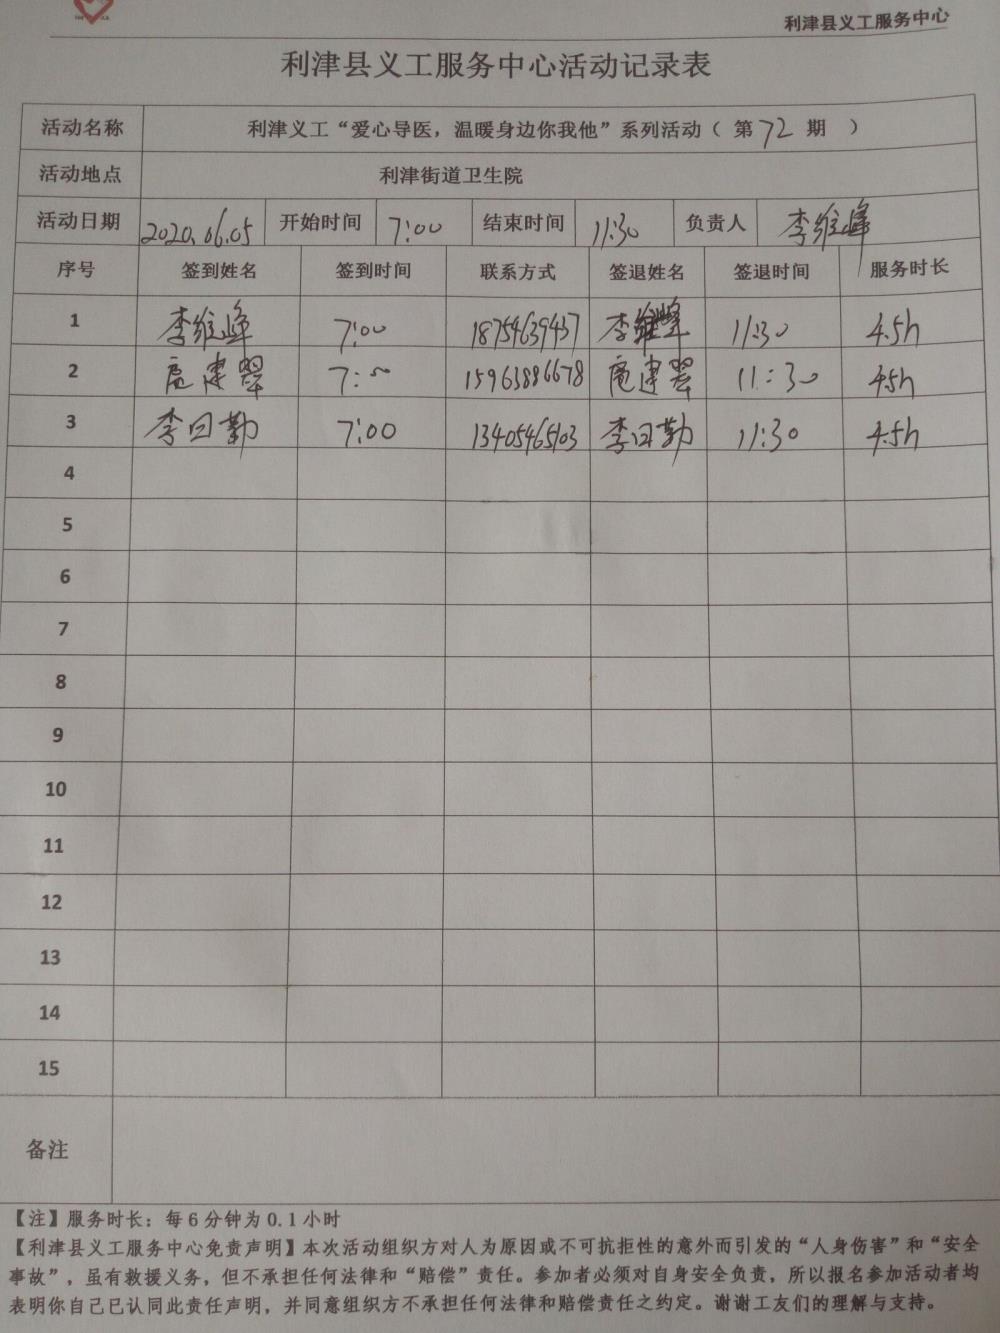 利津县义工服务中心
利津县义工服务中心活动记录表
活动名称 利津义工“爱心导医，温暖身边你我他”系列活动（ 第 72 期 ）
活动地点 利津街道卫生院
活动日期 2020.06.05 开始时间 7:00 结束时间 11:30 负责人 李维峰
序号 签到姓名 签到时间 联系方式 签退姓名 签退时间 服务时长
1 李维峰 7:00 18754639437 李维峰 11:30 4.5h
2 扈建翠 7:00 15963886678 扈建翠 11:30 4.5h
3 李日勤 7:00 13405465103 李日勤 11:30 4.5h
4
5
6
7
8
9
10
11
12
13
14
15
备注
【注】服务时长：每6分钟为0.1小时
【利津县义工服务中心免责声明】本次活动组织方对人为原因或不可抗拒性的意外而引发的“人身伤害”和“安全
事故”，虽有救援义务，但不承担任何法律和“赔偿”责任。参加者必须对自身安全负责，所以报名参加活动者均
表明你自己已认同此责任声明，并同意组织方不承担任何法律和赔偿责任之约定。谢谢工友们的理解与支持。